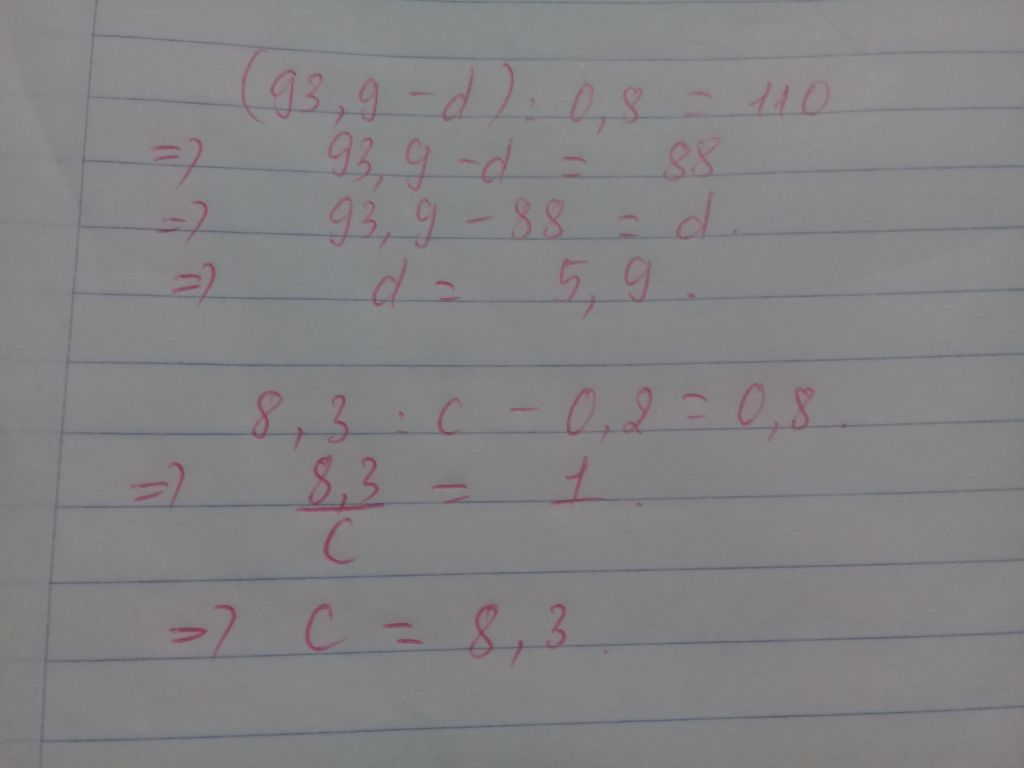 (93,9 - d) : 0,8 = 110
=> 93,9 - d = 88
=> 93,9 - 88 = d.
=> d = 5,9.
8,3 : c - 0,2 = 0,8.
=> 8,3/c = 1.
=> c = 8,3.